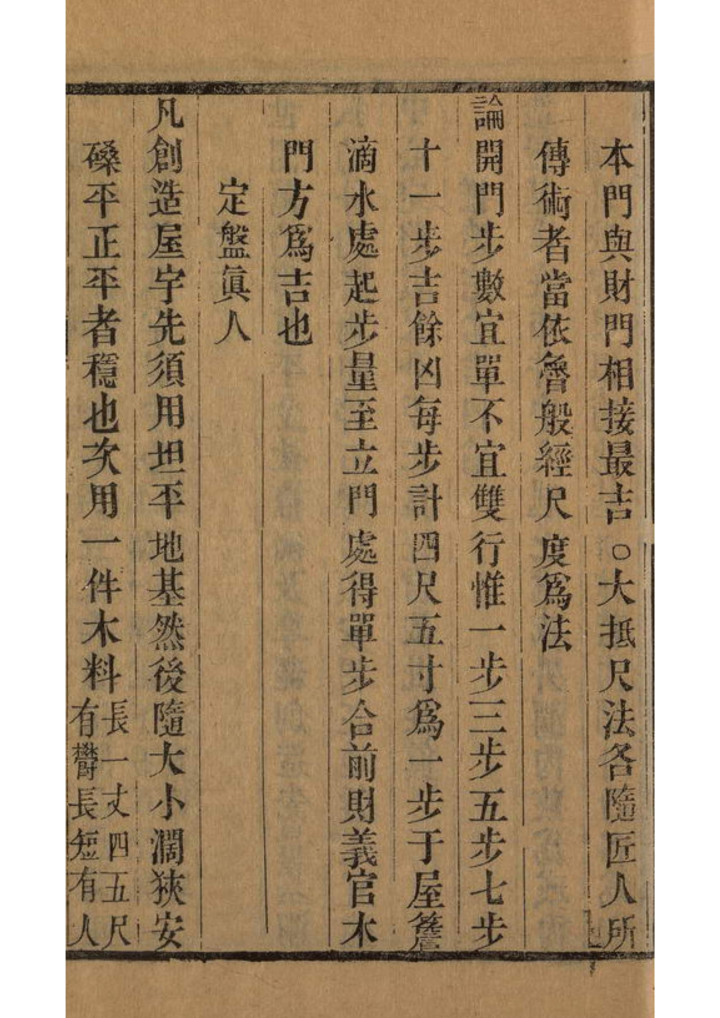 本門與財門相接最吉○大抵尺法各隨匠人所
傳術者當依魯般經尺度爲法
論開門步數宜單不宜雙行惟一步三步五步七步
十一步吉餘凶每步計四尺五寸爲一步于屋簷
滴水處起步量至立門處得單步合前財義官木
門方爲吉也
定盤眞人
凡創造屋宇先須用坦平地基然後隨大小濶狹安
磉平正平者穩也次用一件木料
長一丈四五尺
有欝長短有人